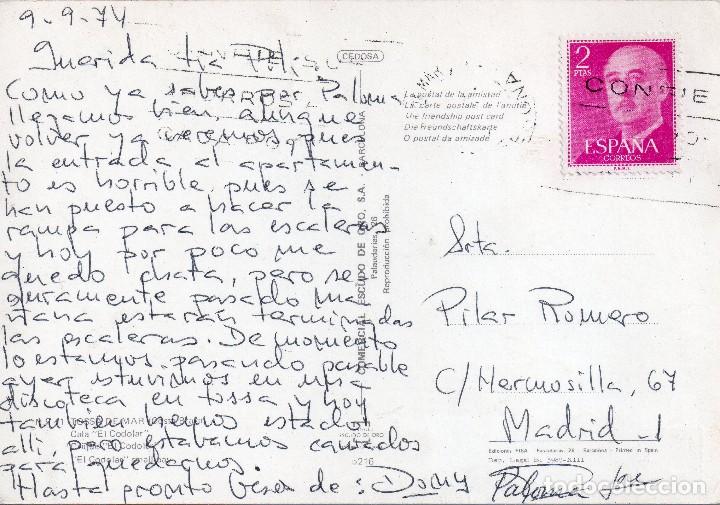 9-9-74
Querida tía
Como ya sabes por Paloma
llegamos bien, aunque
volver ya veremos pues
la entrada al apartamen-
to es horrible, pues se
han puesto a hacer la
rampa para las escaleras
y hoy por poco me
quedo chata, pero se
guramente pasado ma
ñana estarán terminadas
las escaleras. De momento
lo estamos pasando pasable
ayer estuvimos en una
discoteca en tossa y hoy
también hemos estado
alli, pero estabamos cansados
para quedarnos.
Hasta pronto besos de: Domy Paloma
CEDOSA
La postal de la amistad
La carte postale de l'amitié
The friendship post card
Die freundschaftskarte
O postal da amizade
2
PTAS
ESPAÑA
CORREOS
COMERCIAL ESCUDO DE ORO, S.A. - BARCELONA
Palaudarias, 26
Reproducción prohibida
TOSSA DE MAR (Costa Brava)
Cala "El Codolar"
Srta.
Pilar Romero
C/ Hermosilla, 67
Madrid-1
Printed in Spain